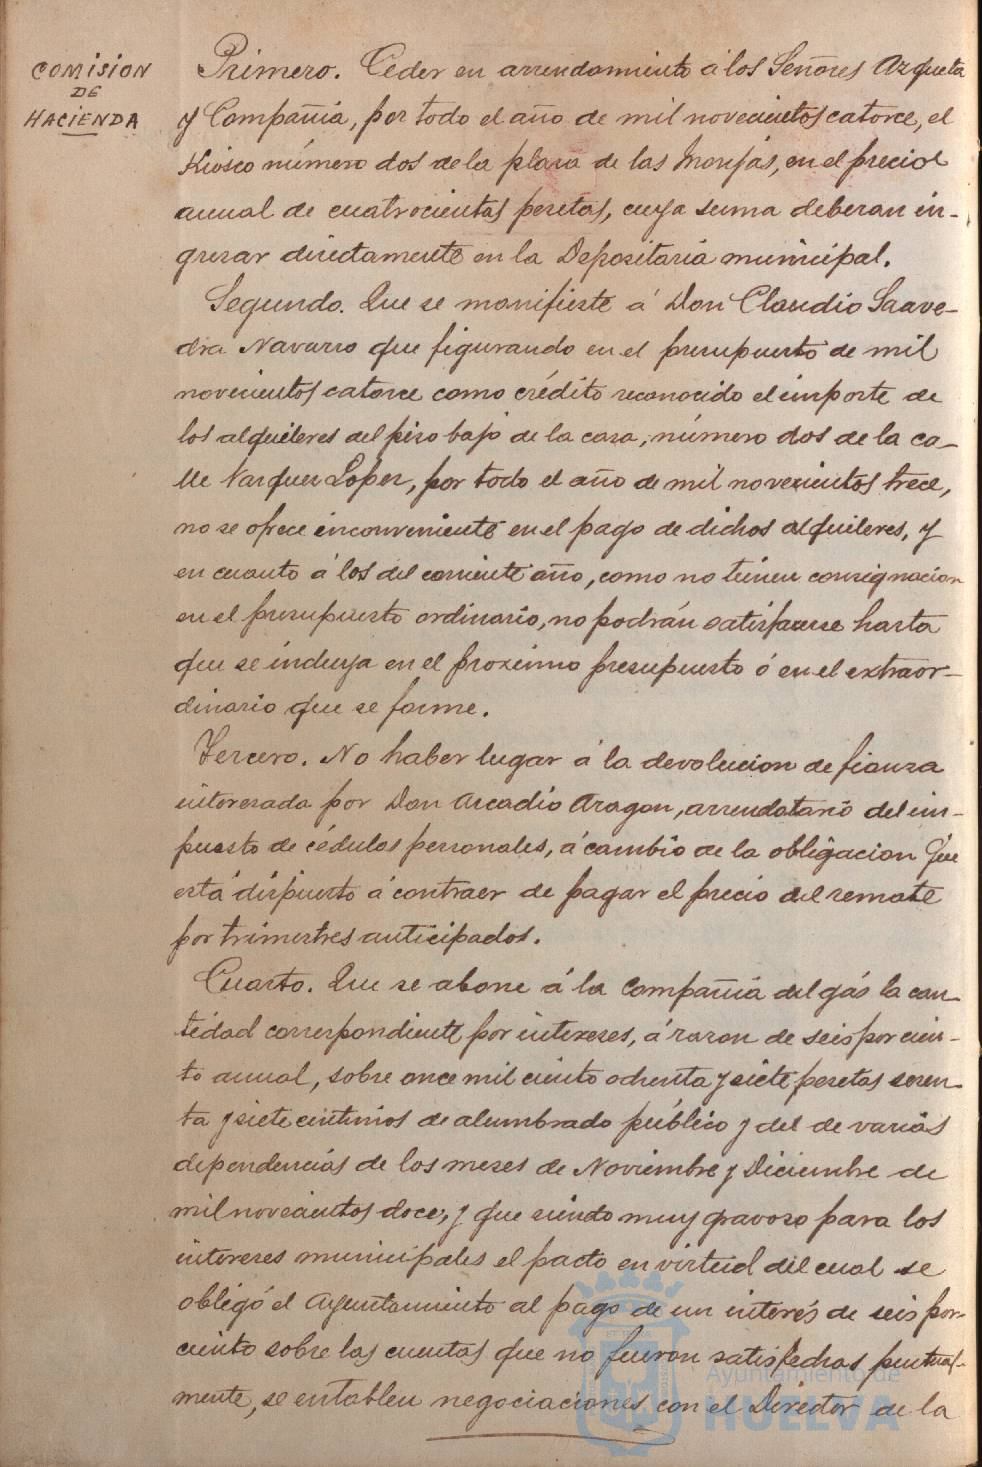 COMISION
DE
HACIENDA
Primero. Ceder en arrendamiento á los Señores Azqueta
y Compañia, por todo el año de mil novecientos catorce, el
Kiosco número dos de la plaza de las Monjas, en el precio
anual de cuatrocientas pesetas, cuya suma deberan in-
gresar directamente en la Depositaria municipal.
Segundo. Que se manifieste á Don Claudio Saave-
dra Navarro que figurando en el presupuesto de mil
novecientos catorce como crédito reconocido el importe de
los alquileres del piso bajo de la casa, número dos de la ca-
lle Vazquez Lopez, por todo el año de mil novecientos trece,
no se ofrece inconveniente en el pago de dichos alquileres, y
en cuanto á los del corriente año, como no tienen consignacion
en el presupuesto ordinario, no podrán satisfacerse hasta
que se incluya en el proximo presupuesto ó en el extraor-
dinario que se forme.
Tercero. No haber lugar á la devolucion de fianza
interesada por Don Arcadio Aragon, arrendatario del im-
puesto de cédulas personales, á cambio de la obligacion que
está dispuesto á contraer de pagar el precio del remate
por trimestres anticipados.
Cuarto. Que se abone á la Compañia del gás la can-
tidad correspondiente por intereses, á razon de seis por cien-
to anual, sobre once mil ciento ochenta y siete pesetas sesen-
ta y siete centimos de alumbrado público y del de varias
dependencias de los meses de Noviembre y Diciembre de
mil novecientos doce, y que siendo muy gravoso para los
intereses municipales el pacto en virtud del cual se
obligó el Ayuntamiento al pago de un interés de seis por
ciento sobre las cuentas que no fueron satisfechas puntual-
mente, se entablen negociaciones con el Director de la
Ayuntamiento de
HUELVA